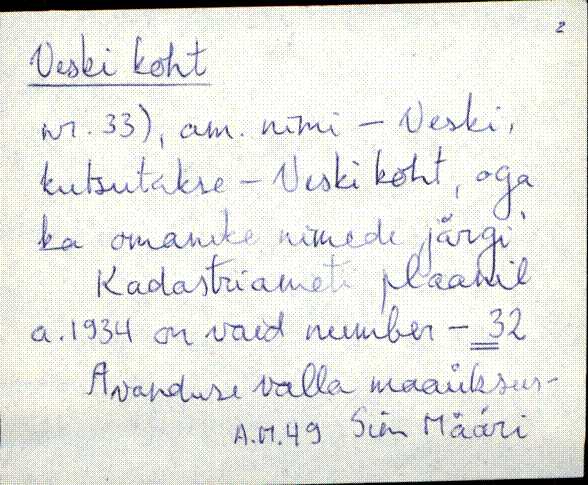 2
Veski koht
nr. 33), am. nimi – Veski,
kutsutakse – Veski koht, aga
ka omanike nimede järgi.
Kadastriameti plaanil
a. 1934 on vaid number – 32
Avanduse valla maaüksus-
A.M. 49 Siin Määri